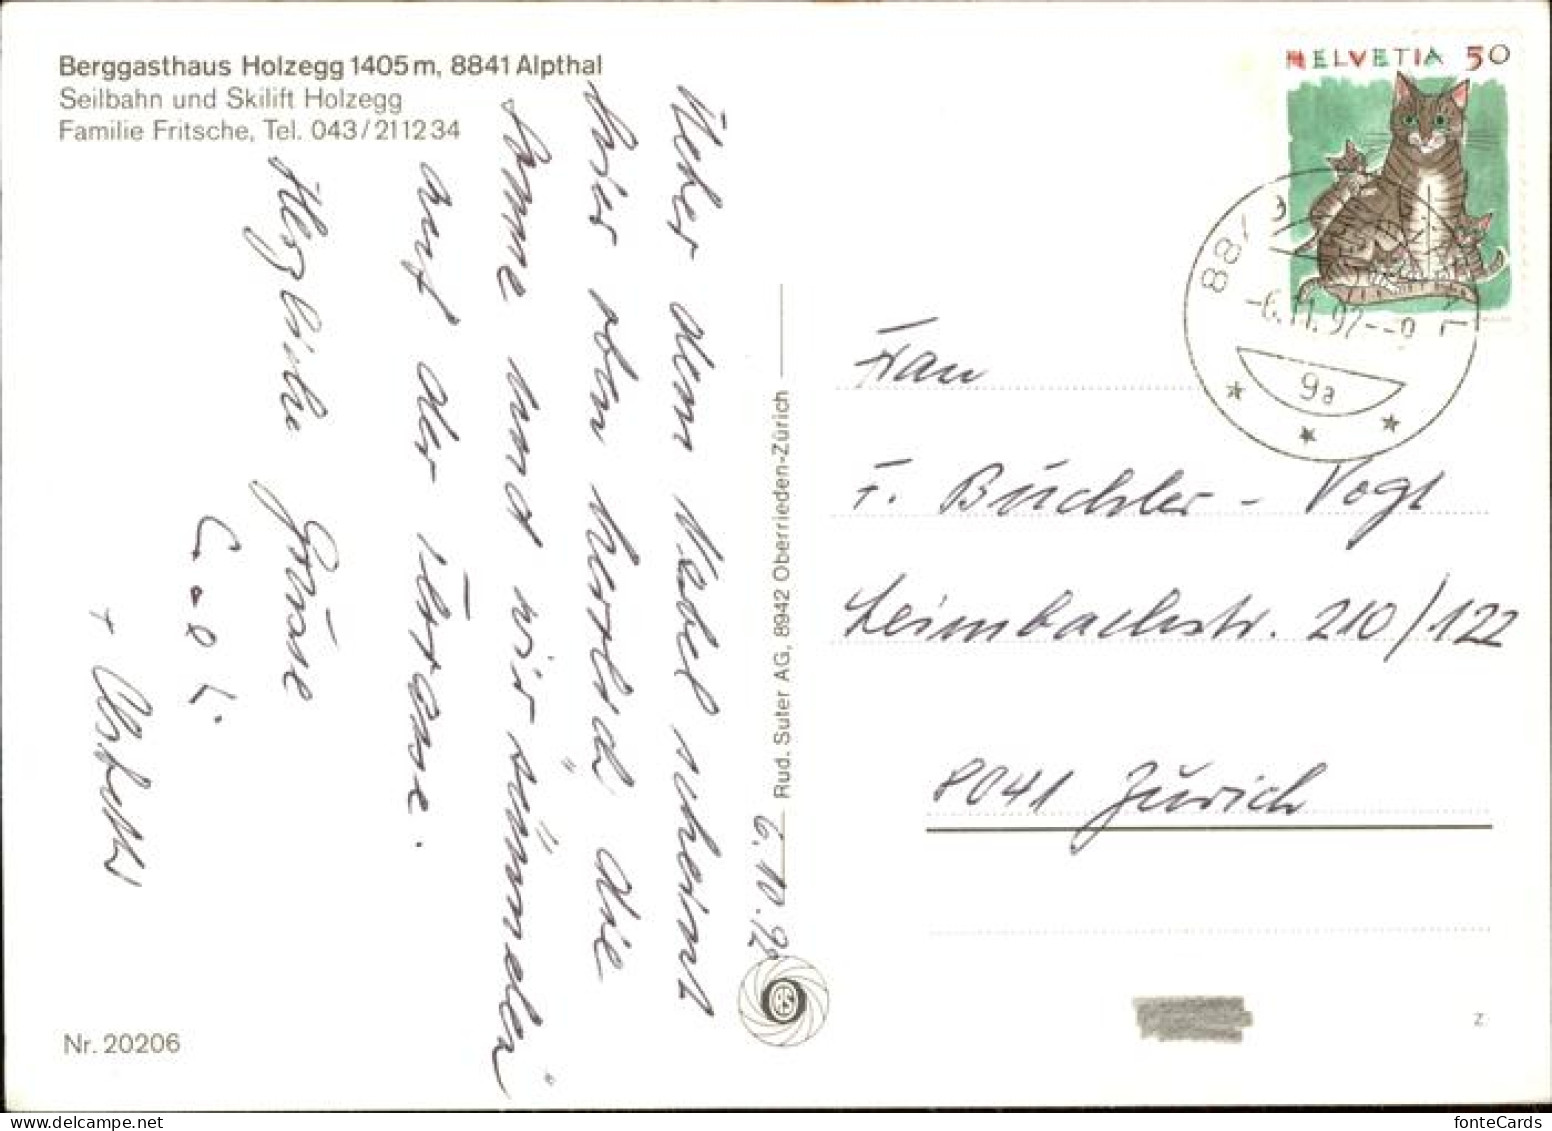 Berggasthaus Holzegg 1405 m, 8841 Alpthal
Seilbahn und Skilift Holzegg
Familie Fritsche, Tel. 043/21 12 34
6.10.92
Ueber dem Nebel scheint
hier oben herrlich die
Sonne und wir "sünnelen"
auf der Terrasse.
Herzliche Grüsse
+ Ursheli
Nr. 20206
Rud. Suter AG, 8942 Oberrieden-Zürich
RS
HELVETIA 50
-6.11.92--9
9a
Frau
F. Büchler - Vogt
Leimbachstr. 210/122
8041 Zürich
Z
fonteCards